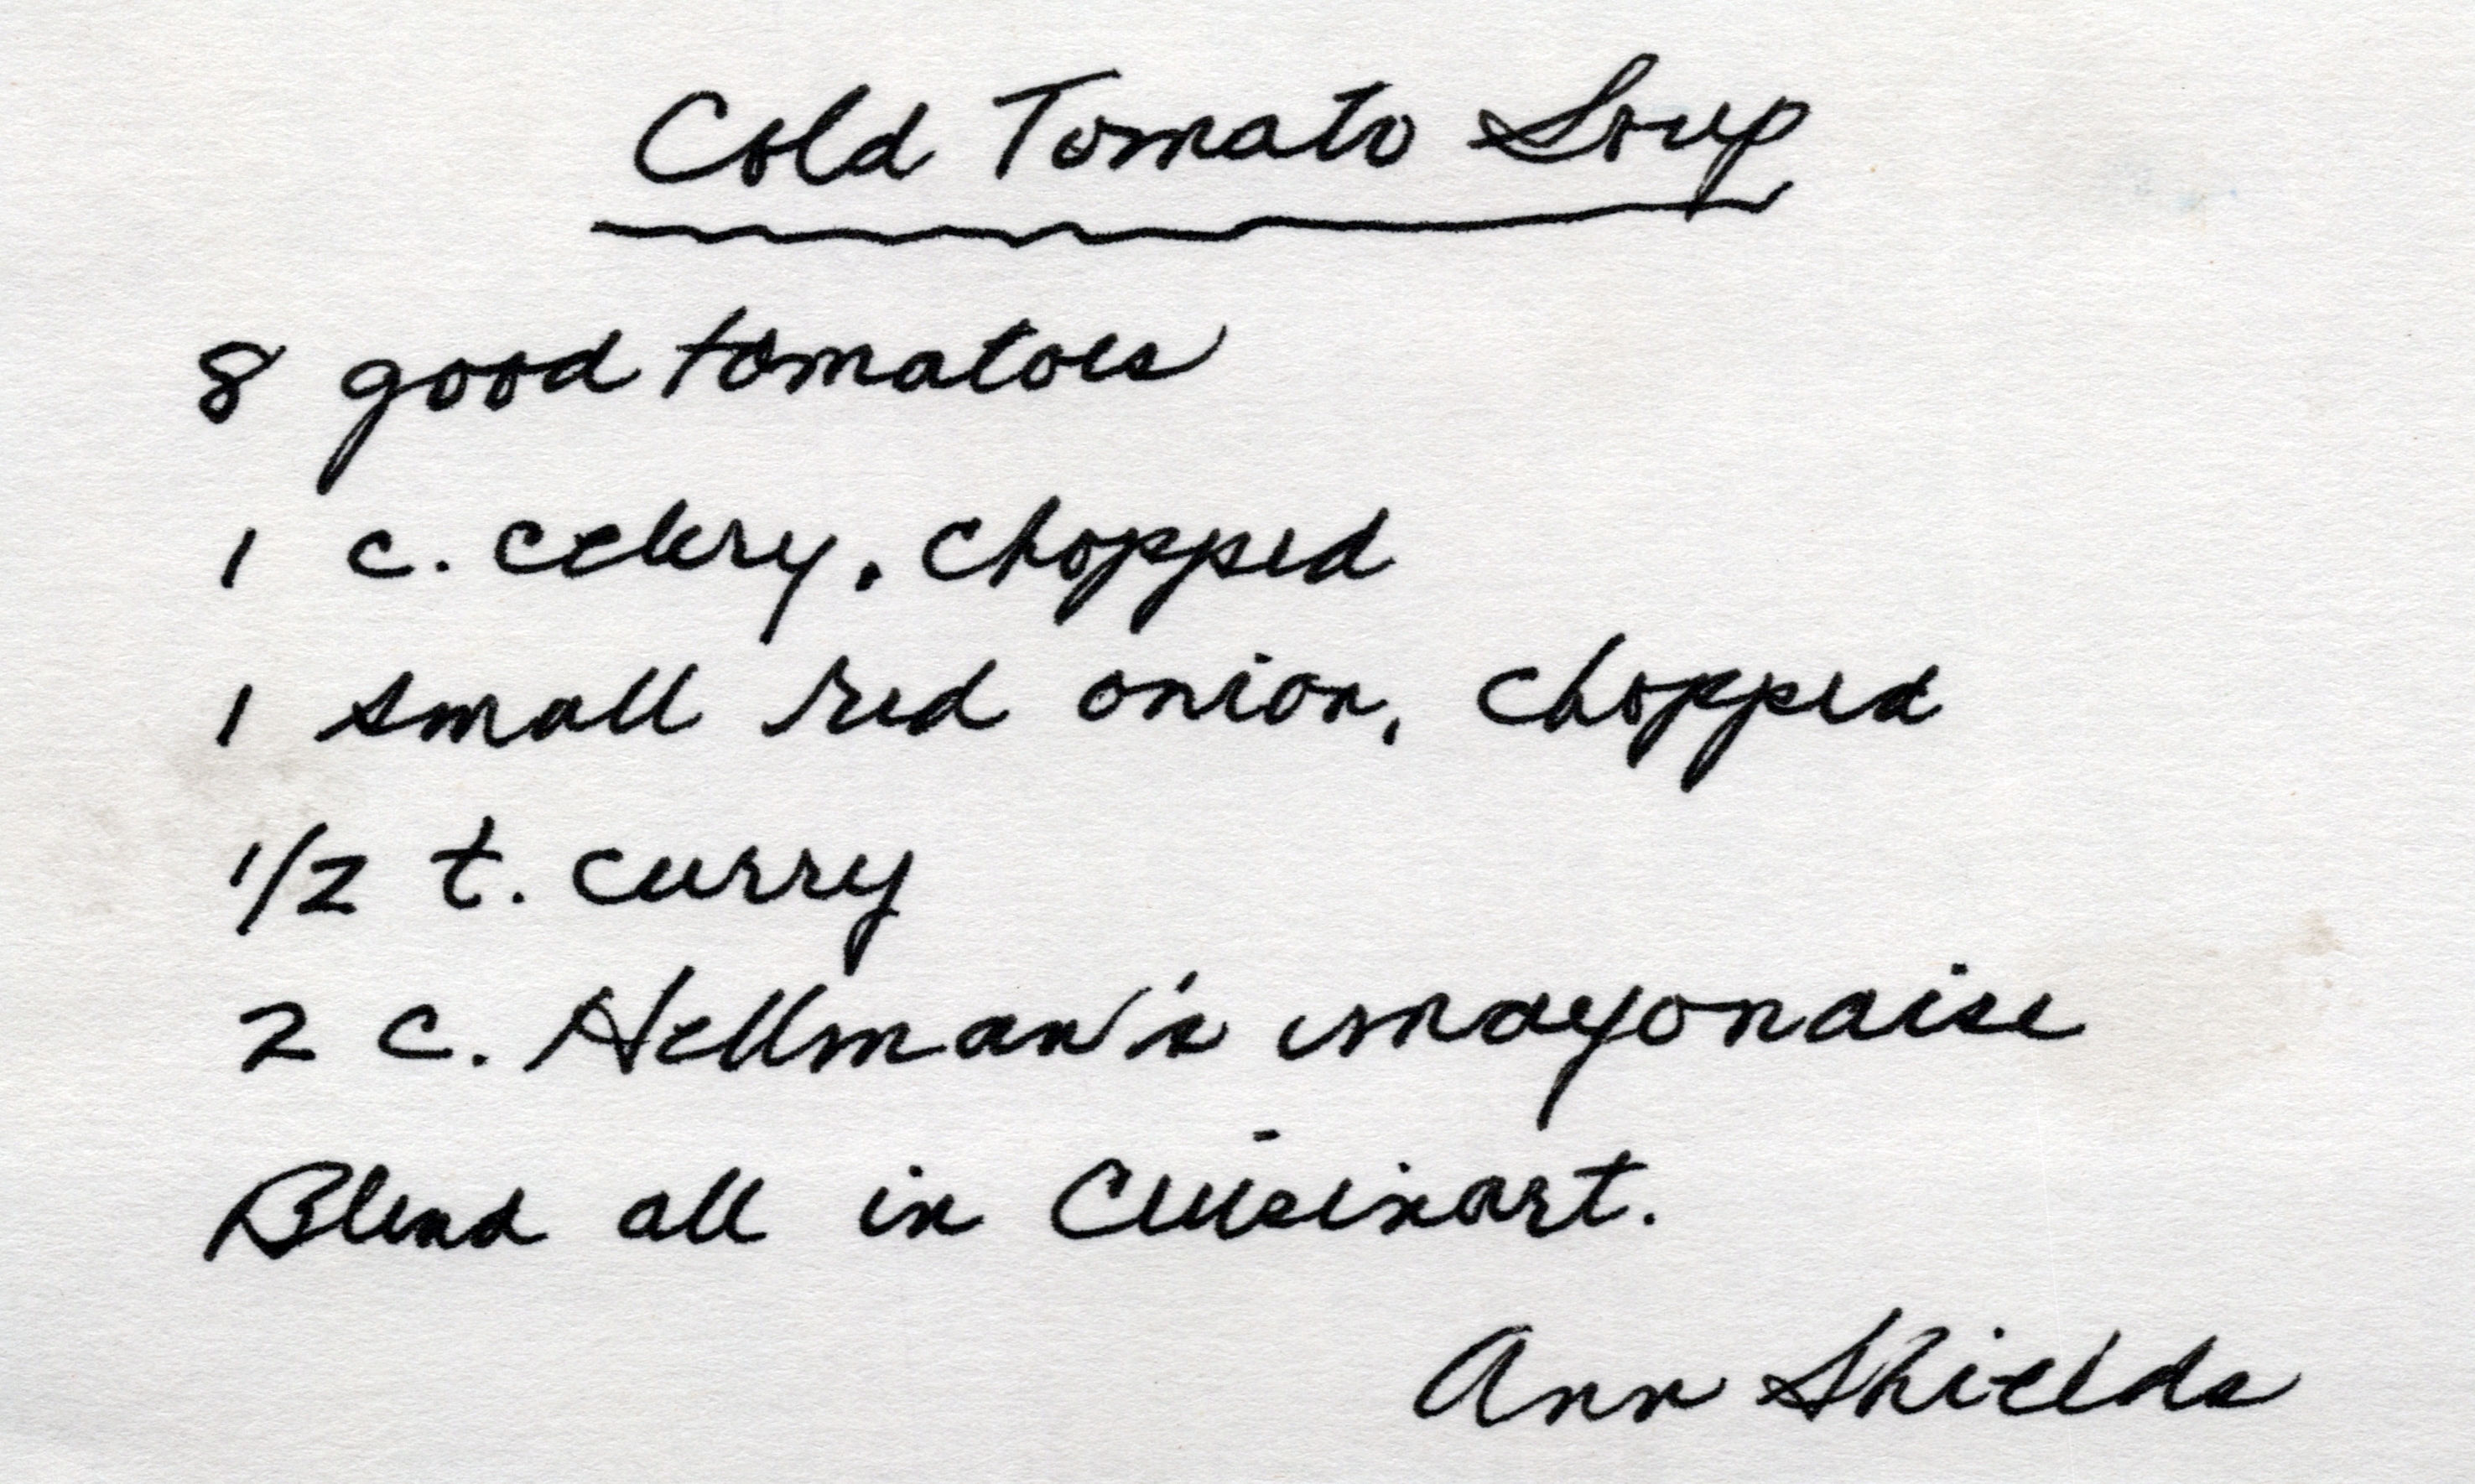 Cold Tomato Soup
8 good tomatoes
1 c. celery, chopped
1 small red onion, chopped
1/2 t. curry
2 c. Hellman's mayonaise
Blend all in Cuisinart.
Ann Shields